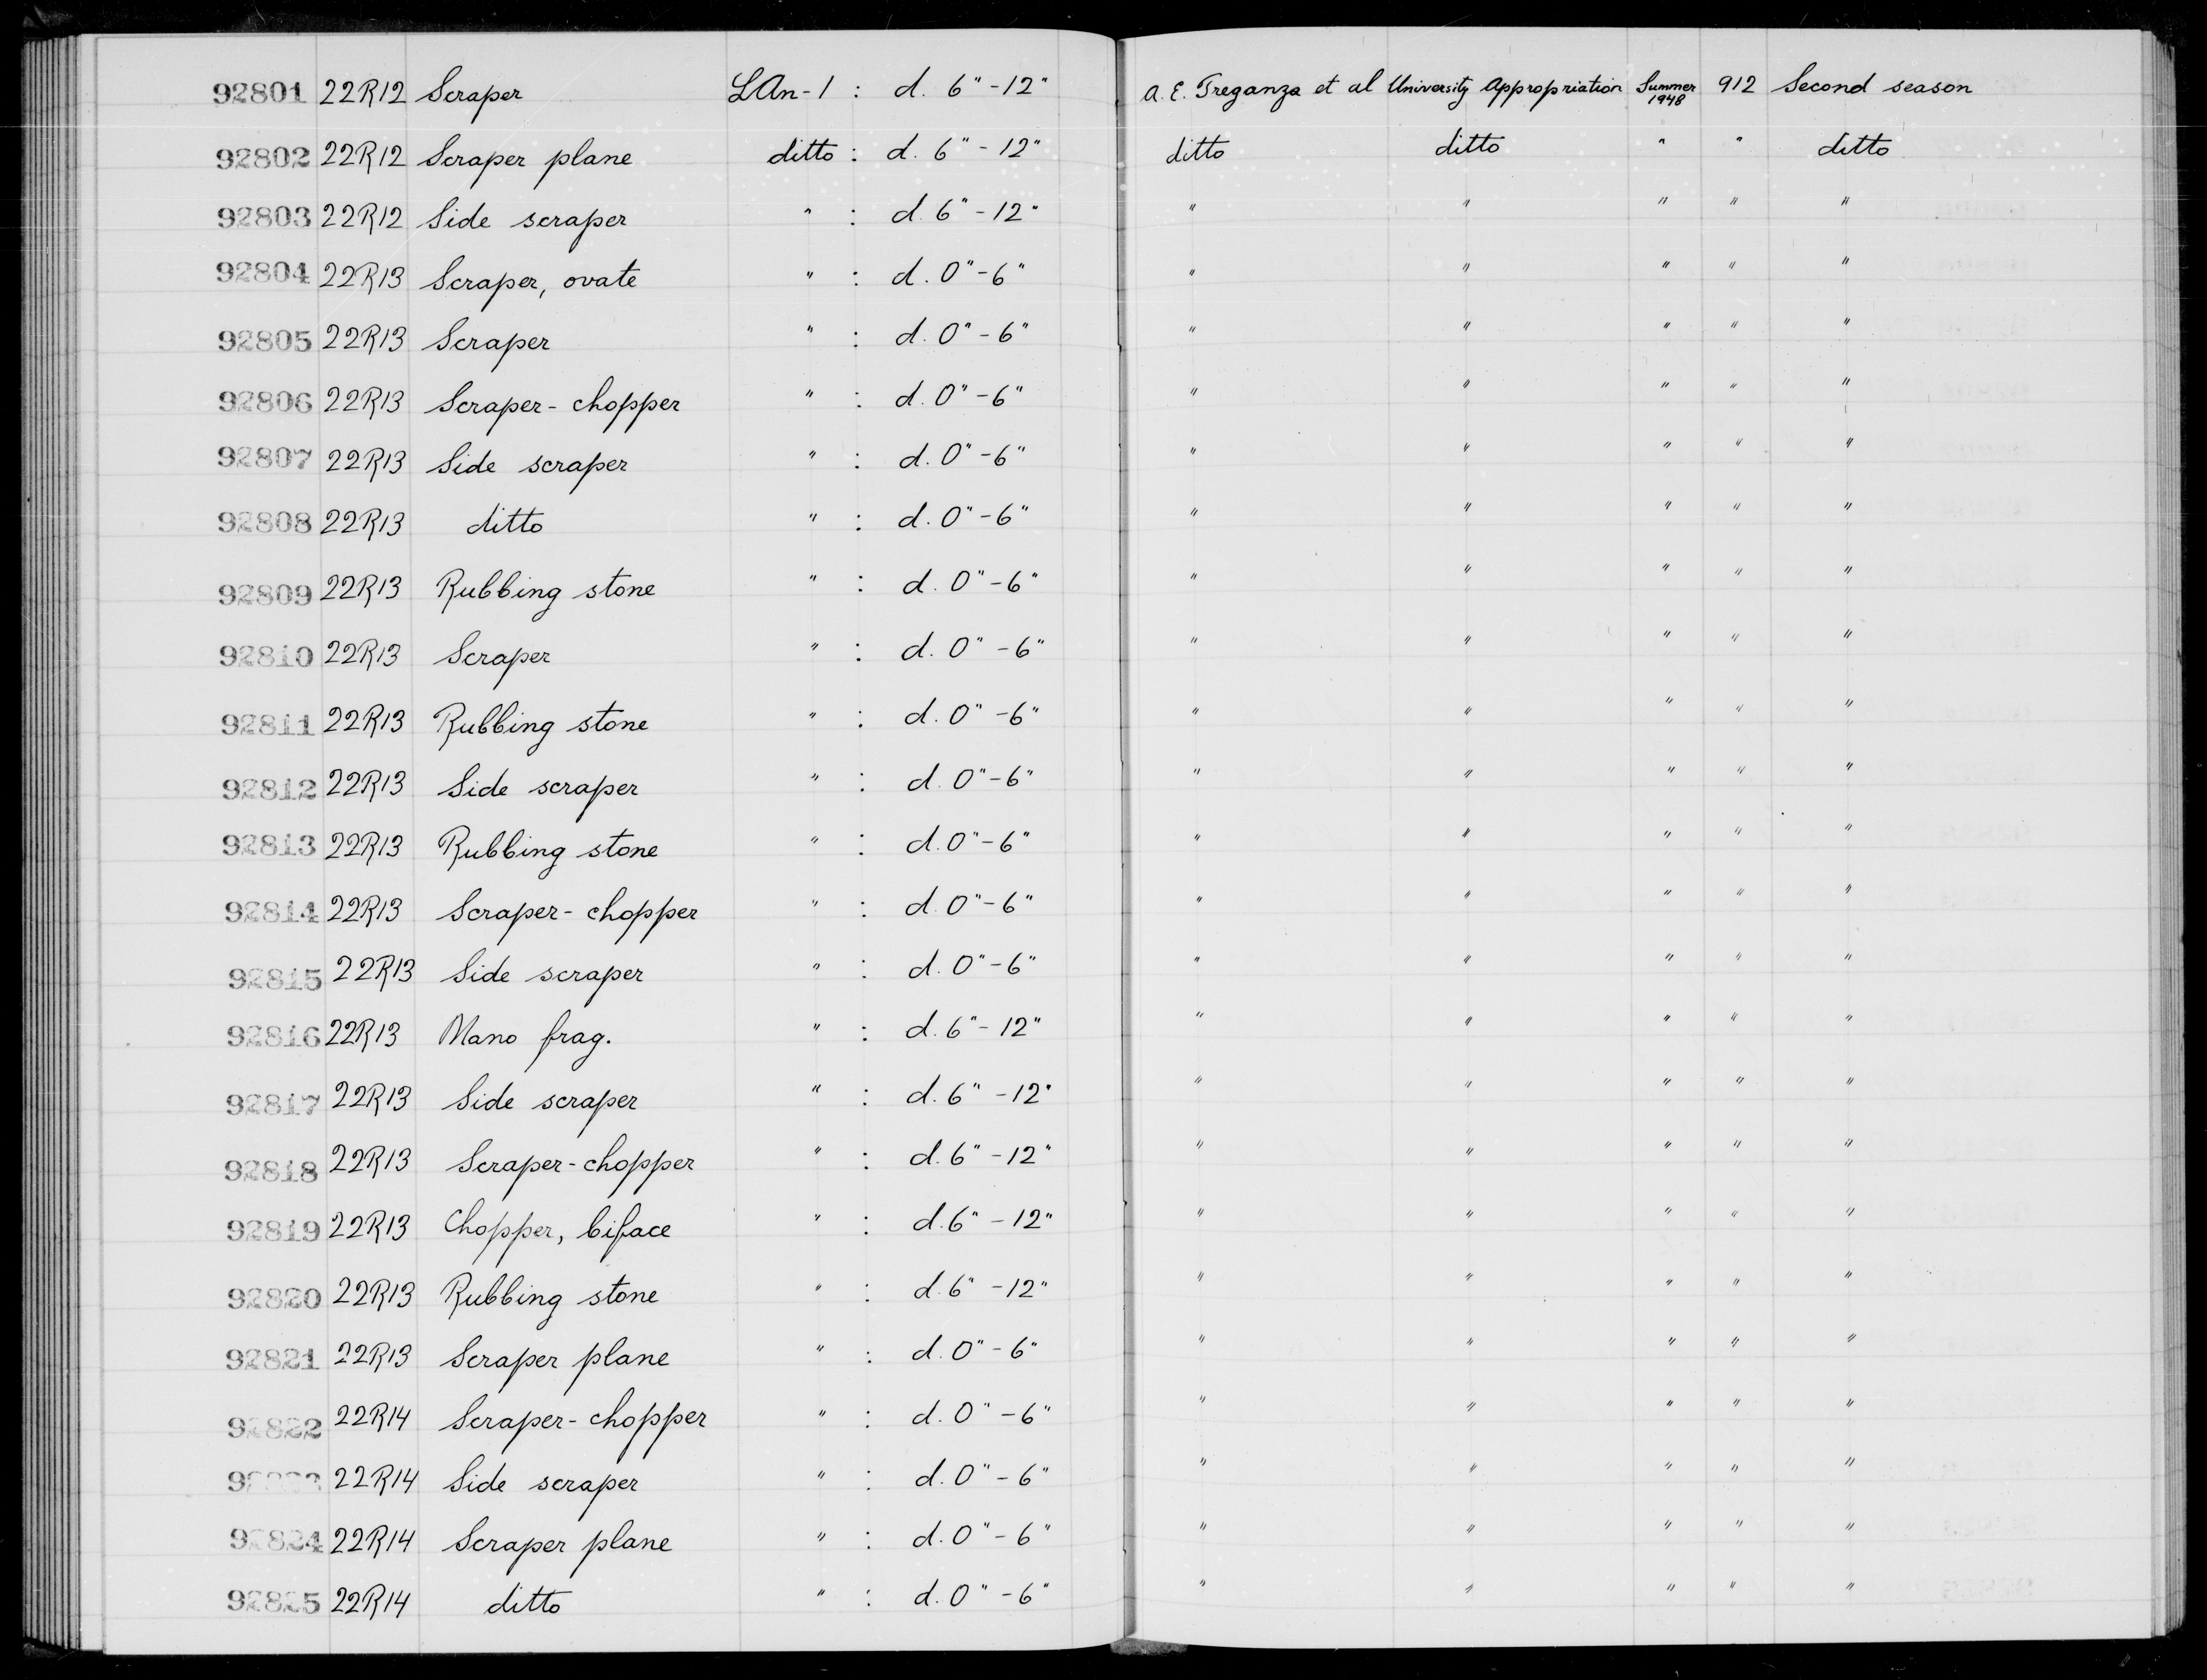 92801 22R12 Scraper LAn-1 : d. 6" -12" A. E. Treganza et al University Appropriation Summer 1948 912 Second season
92802 22R12 Scraper plane ditto : d. 6" - 12" ditto ditto " " ditto
92803 22R12 Side scraper " : d. 6" - 12" " " " " "
92804 22R13 Scraper, ovate " : d. 0" - 6" " " " " "
92805 22R13 Scraper " : d. 0" - 6" " " " " "
92806 22R13 Scraper - chopper " : d. 0" - 6" " " " " "
92807 22R13 Side scraper " : d. 0" - 6" " " " " "
92808 22R13 ditto " : d. 0" - 6" " " " " "
92809 22R13 Rubbing stone " : d. 0" - 6" " " " " "
92810 22R13 Scraper " : d. 0" - 6" " " " " "
92811 22R13 Rubbing stone " : d. 0" - 6" " " " " "
92812 22R13 Side scraper " : d. 0" - 6" " " " " "
92813 22R13 Rubbing stone " : d. 0" - 6" " " " " "
92814 22R13 Scraper - chopper " : d. 0" - 6" " " " " "
92815 22R13 Side scraper " : d. 0" - 6" " " " " "
92816 22R13 Mano frag. " : d. 6" - 12" " " " " "
92817 22R13 Side scraper " : d. 6" - 12" " " " " "
92818 22R13 Scraper - chopper " : d. 6" - 12" " " " " "
92819 22R13 Chopper, biface " : d. 6" - 12" " " " " "
92820 22R13 Rubbing stone " : d. 6" - 12" " " " " "
92821 22R13 Scraper plane " : d. 0" - 6" " " " " "
92822 22R14 Scraper - chopper " : d. 0" - 6" " " " " "
92823 22R14 Side scraper " : d. 0" - 6" " " " " "
92824 22R14 Scraper plane " : d. 0" - 6" " " " " "
92825 22R14 ditto " : d. 0" - 6" " " " " "